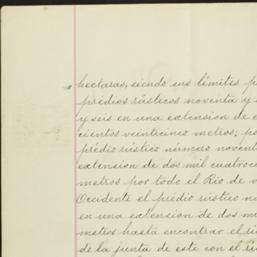 hectaras, siendo sus límites p
prédios rústicos noventa y
y seis en una extension de c
cientos veinticinco metros; po
prédio rústico número novent
extension de dos mil cuatroc
metros por todo el Rio de v
Occidente el prédio rústico n
en una extension de dos m
metros hasta encontrar el ri
de la junta de este con el Ri